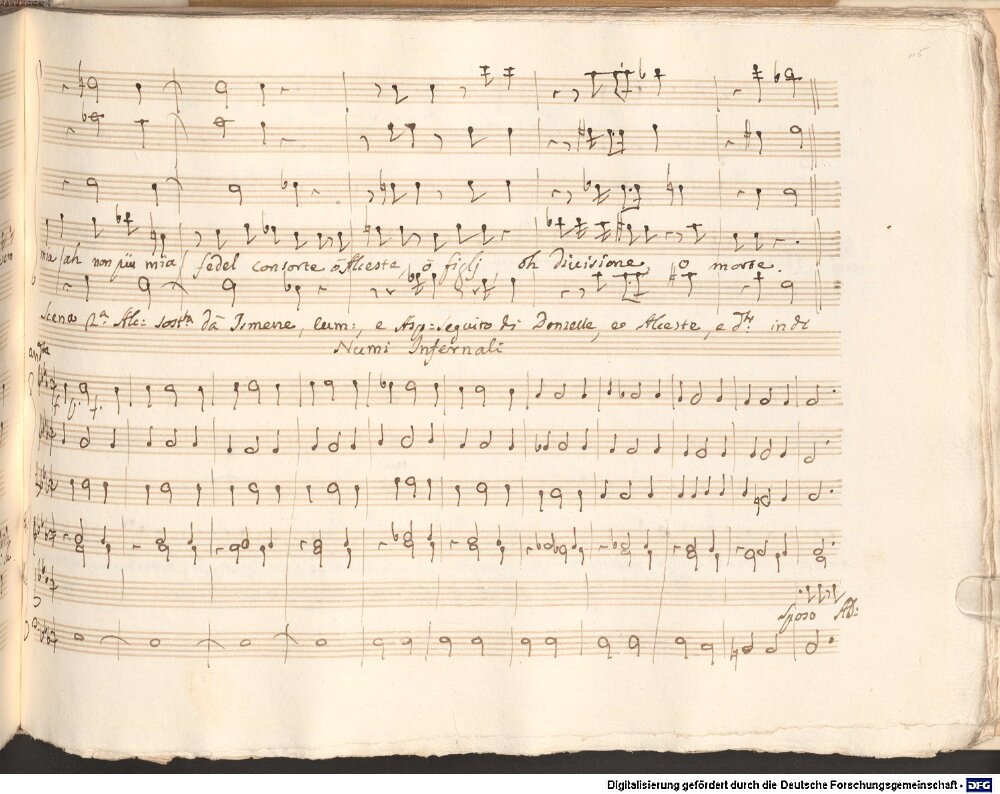 115
mia /ah non più mia/ fedel consorte ô Alceste, ô figlj oh divisione, o morte.
Scena 2.a Alc: sost.a dã Ismene, Eum:, e Asp: Seguito di Donzelle, e Alceste, e d.ti indi
Numi Infernali
and.te
f. p. f.
Sposo Ad:
Digitalisierung gefördert durch die Deutsche Forschungsgemeinschaft - DFG